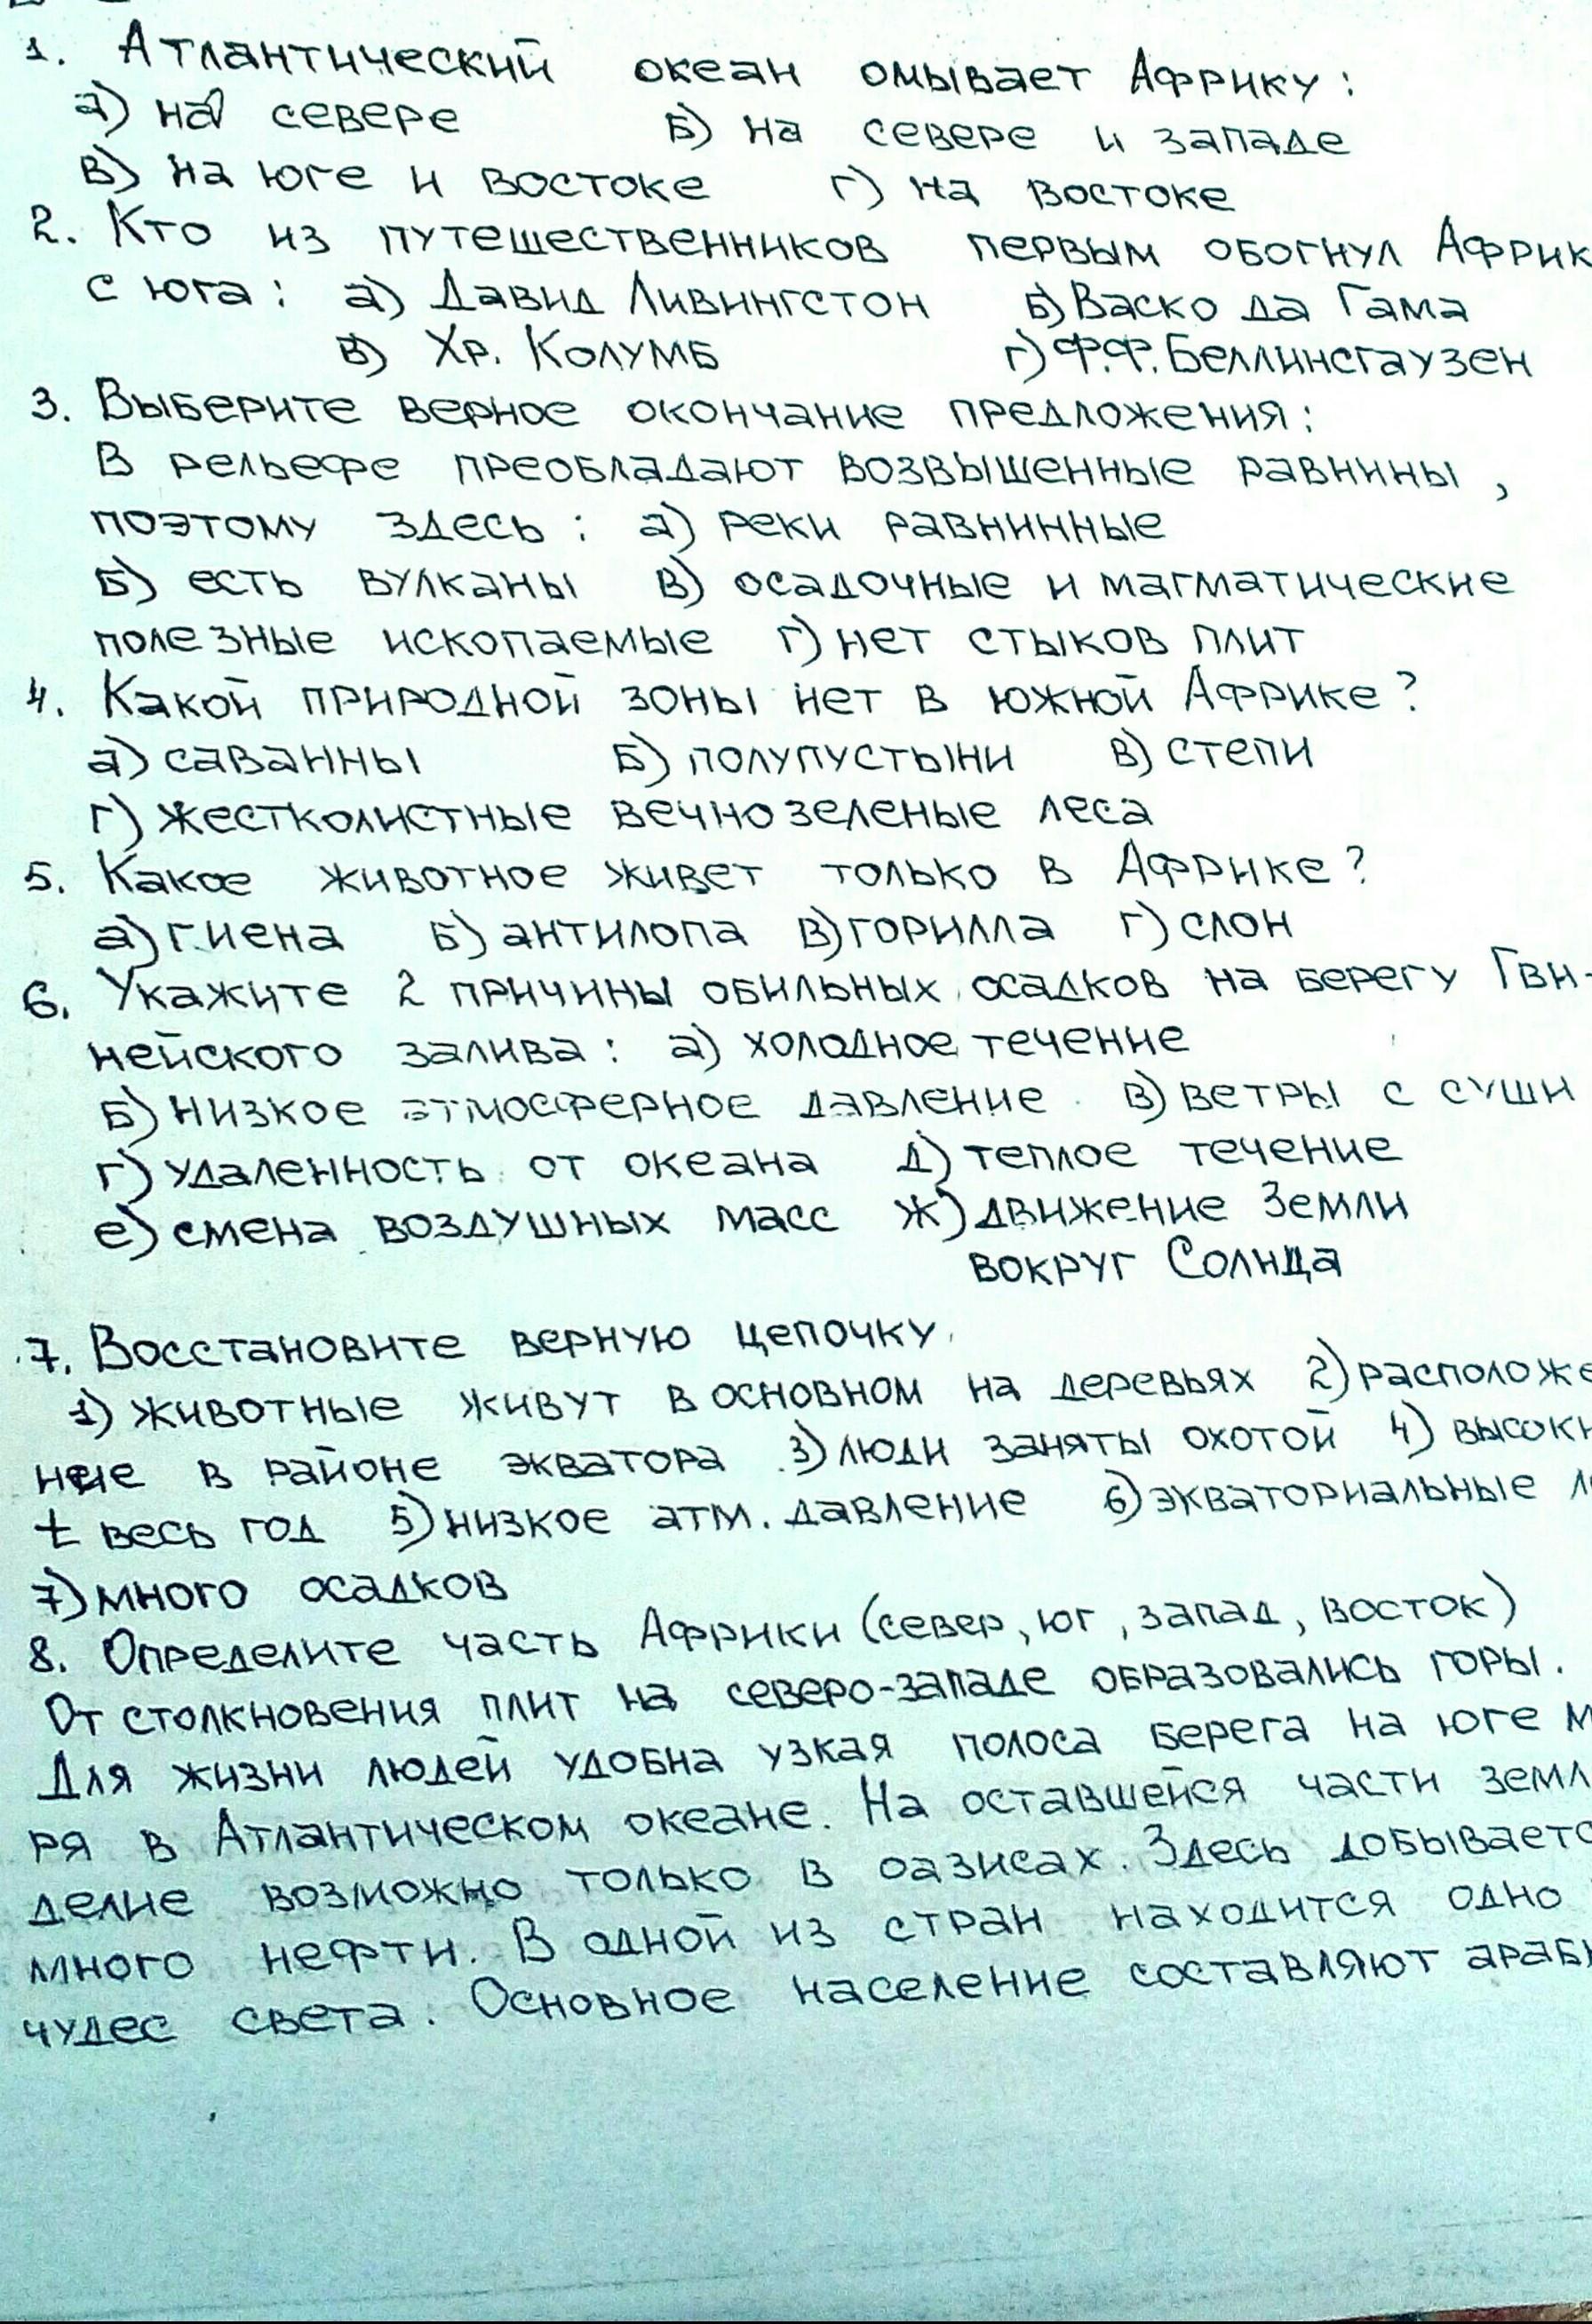 1. Атлантический океан омывает Африку:
а) на севере Б) на севере и западе
В) на юге и востоке г) на востоке
2. Кто из путешественников первым обогнул Африк
с юга: а) Давид Ливингстон Б) Васко да Гама
В) Хр. Колумб г) Ф.Ф. Беллинсгаузен
3. Выберите верное окончание предложения:
В рельефе преобладают возвышенные равнины,
поэтому здесь: а) реки равнинные
Б) есть вулканы В) осадочные и магматические
полезные ископаемые г) нет стыков плит
4. Какой природной зоны нет в южной Африке?
а) саванны Б) полупустыни В) степи
г) жестколистные вечнозеленые леса
5. Какое животное живет только в Африке?
а) гиена Б) антилопа В) горилла г) слон
6. Укажите 2 причины обильных осадков на берегу Гви-
нейского залива: а) холодное течение
Б) низкое атмосферное давление В) ветры с суши
г) удаленность от океана Д) теплое течение
е) смена воздушных масс Ж) движение Земли
вокруг Солнца
7. Восстановите верную цепочку.
1) животные живут в основном на деревьях 2) расположе
ние в районе экватора 3) люди заняты охотой 4) высоки
t весь год 5) низкое атм. давление 6) экваториальные
7) много осадков
8. Определите часть Африки (север, юг, запад, восток)
От столкновения плит на северо-западе образовались горы.
Для жизни людей удобна узкая полоса берега на юге м
ря в Атлантическом океане. На оставшейся части земл
делие возможно только в оазисах. Здесь добываетс
много нефти. В одной из стран находится одно
чудес света. Основное население составляют араб